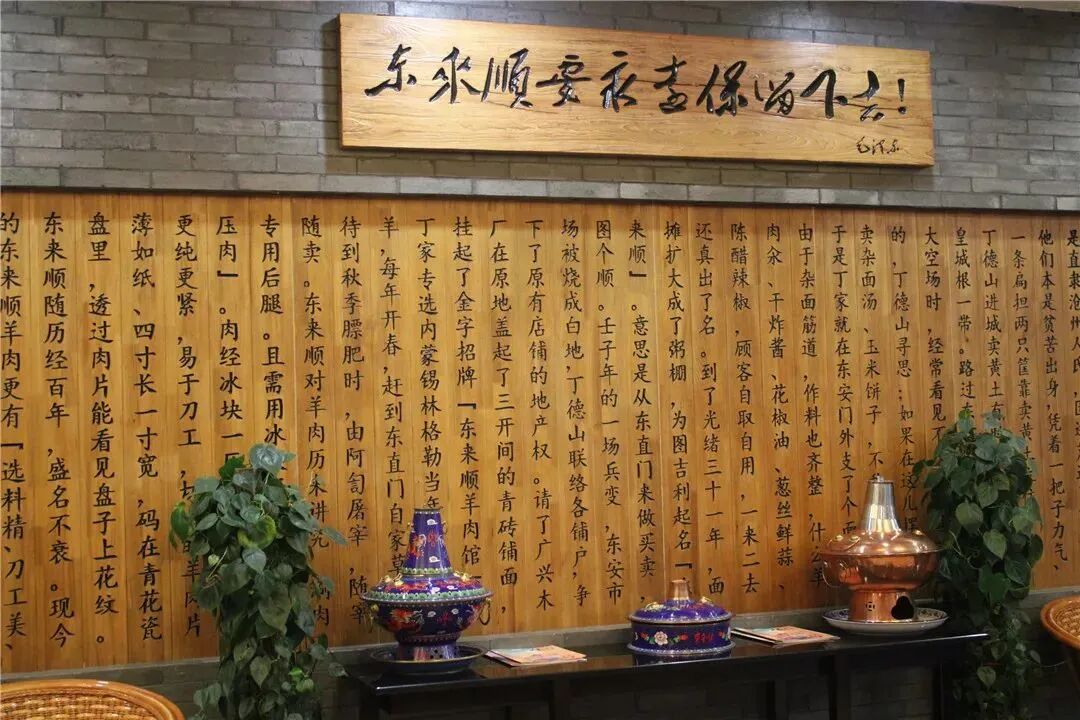 东來順要永远保留下去!
毛泽东
是直隶沧州人氏,回
他们本是贫苦出身,凭着一把子力气、
一条扁担两只筐靠卖黄
丁德山进城卖黄土有
皇城根一带。路过东
大空场时 经常看见不
的,丁德山寻思:如果在这儿
卖杂面汤、玉米饼子,不
于是丁家就在东安门外支了个面
由于杂面筋道,作料也齐整,什么羊
肉汆、干炸酱、花椒油、葱丝鲜蒜、
陈醋辣椒,顾客自取自用,一来二去
还真出了名。到了光绪三十一年,面
摊扩大成了粥棚,为图吉利起名「
来顺」。意思是从东直门来做买卖,
图个顺。壬子年的一场兵变,东安市
场被烧成白地,丁德山联络各铺户,争
下了原有店铺的地产权。请了广兴木
厂在原地盖起了三开间的青砖铺面,
挂起了金字招牌「东来顺羊肉馆
丁家专选内蒙锡林格勒当年
羊,每年开春,赶到东直门自家
待到秋季膘肥时,由阿訇屠宰,随宰
随卖。东来顺对羊肉历来讲究
专用后腿。且需用冰
压肉」。肉经冰块一压
更纯更紧,易于刀工,切 的羊肉片
薄如纸、四寸长一寸宽,码在青花瓷
盘里,透过肉片能看见盘子上花纹。
东来顺随历经百年,盛名不衰。现今
的东来顺羊肉更有「选料精、刀工美、